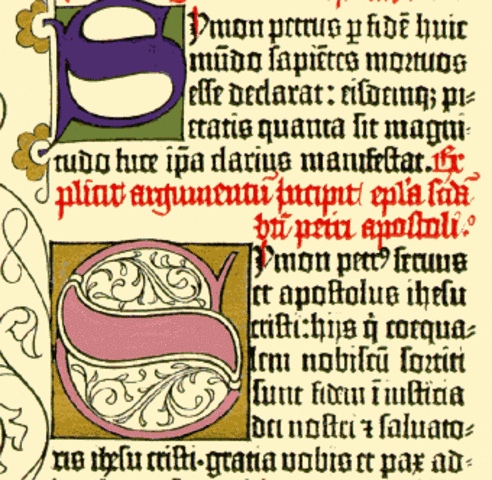 SYmon petrus ꝑ fidē huic
mūdo sapiētes mortuos
esse declarat: eisdemq; pi⸗
etatis quanta sit magni⸗
tudo luce ip̄a clarius manifestat. Ex
plicit argumentū Incipit ep̄la scd̄a
btī petri apostoli.
SYmon petrꝰ seruus
et apostolus ihesu
cristi: hijs q̇ coequa⸗
lem nobiscū sortiti
sunt fidem ī iusticia
dei nostri ⁊ saluato⸗
ris ihesu cristi. gratia vobis et pax ad⸗